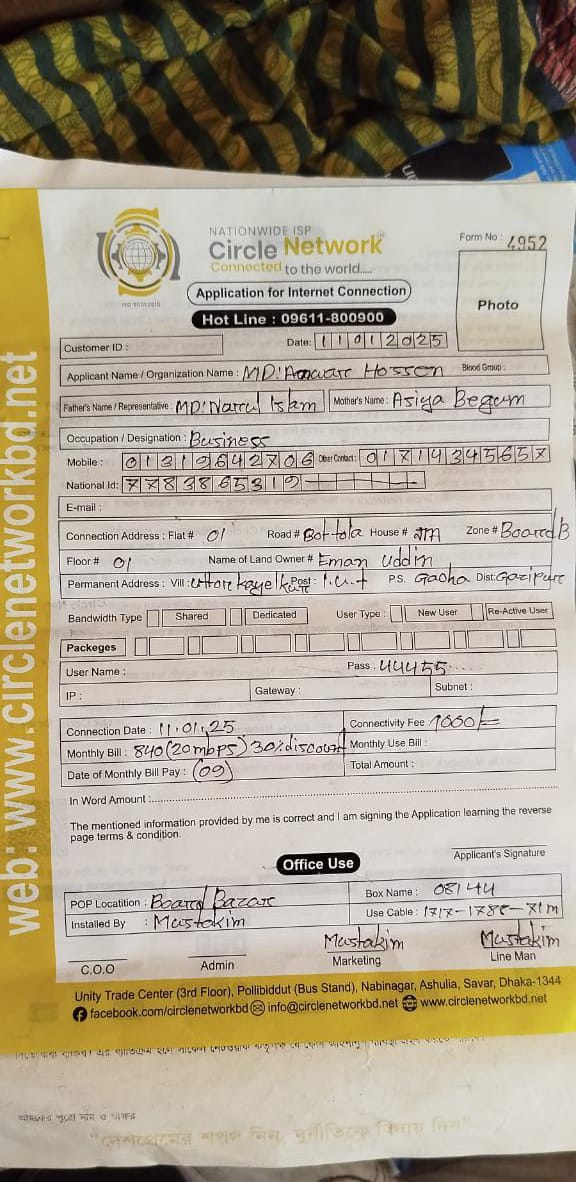 NATIONWIDE ISP
Circle Network
Connected to the world....
ISO 9001:2015
Form No : 4952
Application for Internet Connection
Hot Line : 09611-800900
Photo
Customer ID :
Date: 11012025
Applicant Name / Organization Name : MD: Anowar Hossen Blood Group :
Father's Name / Representative : MD: Narrul Islam Mother's Name : Asiya Begum
Occupation / Designation : Business
Mobile : 01319642706 Other Contact : 01714345657
National Id: 7783865319
E-mail :
Connection Address : Flat # 01 Road # Bot tola House # Zone # Board B
Floor # 01 Name of Land Owner # Eman Uddin
Permanent Address : Vill : Post : I.U.T P.S. Gacha Dist: Gazipure
Bandwidth Type Shared Dedicated User Type : New User Re-Active User
Packeges
User Name : Pass : 44455
IP : Gateway : Subnet :
Connection Date : 11.01.25 Connectivity Fee : 1000/=
Monthly Bill : 840 (20mbps) 30% discount Monthly Use Bill :
Date of Monthly Bill Pay : (09) Total Amount :
In Word Amount :
The mentioned information provided by me is correct and I am signing the Application learning the reverse
page terms & condition.
Applicant's Signature
Office Use
POP Locatition : Board Bazar Box Name : 08144
Installed By : Mustakim Use Cable : 1717-1788-71m
Mustakim Mustakim
C.O.O Admin Marketing Line Man
Unity Trade Center (3rd Floor), Pollibiddut (Bus Stand), Nabinagar, Ashulia, Savar, Dhaka-1344
facebook.com/circlenetworkbd info@circlenetworkbd.net www.circlenetworkbd.net
web: www.circlenetworkbd.net
"দেশপ্রেমের শপথ নিন, দুর্নীতিকে বিদায় দিন"